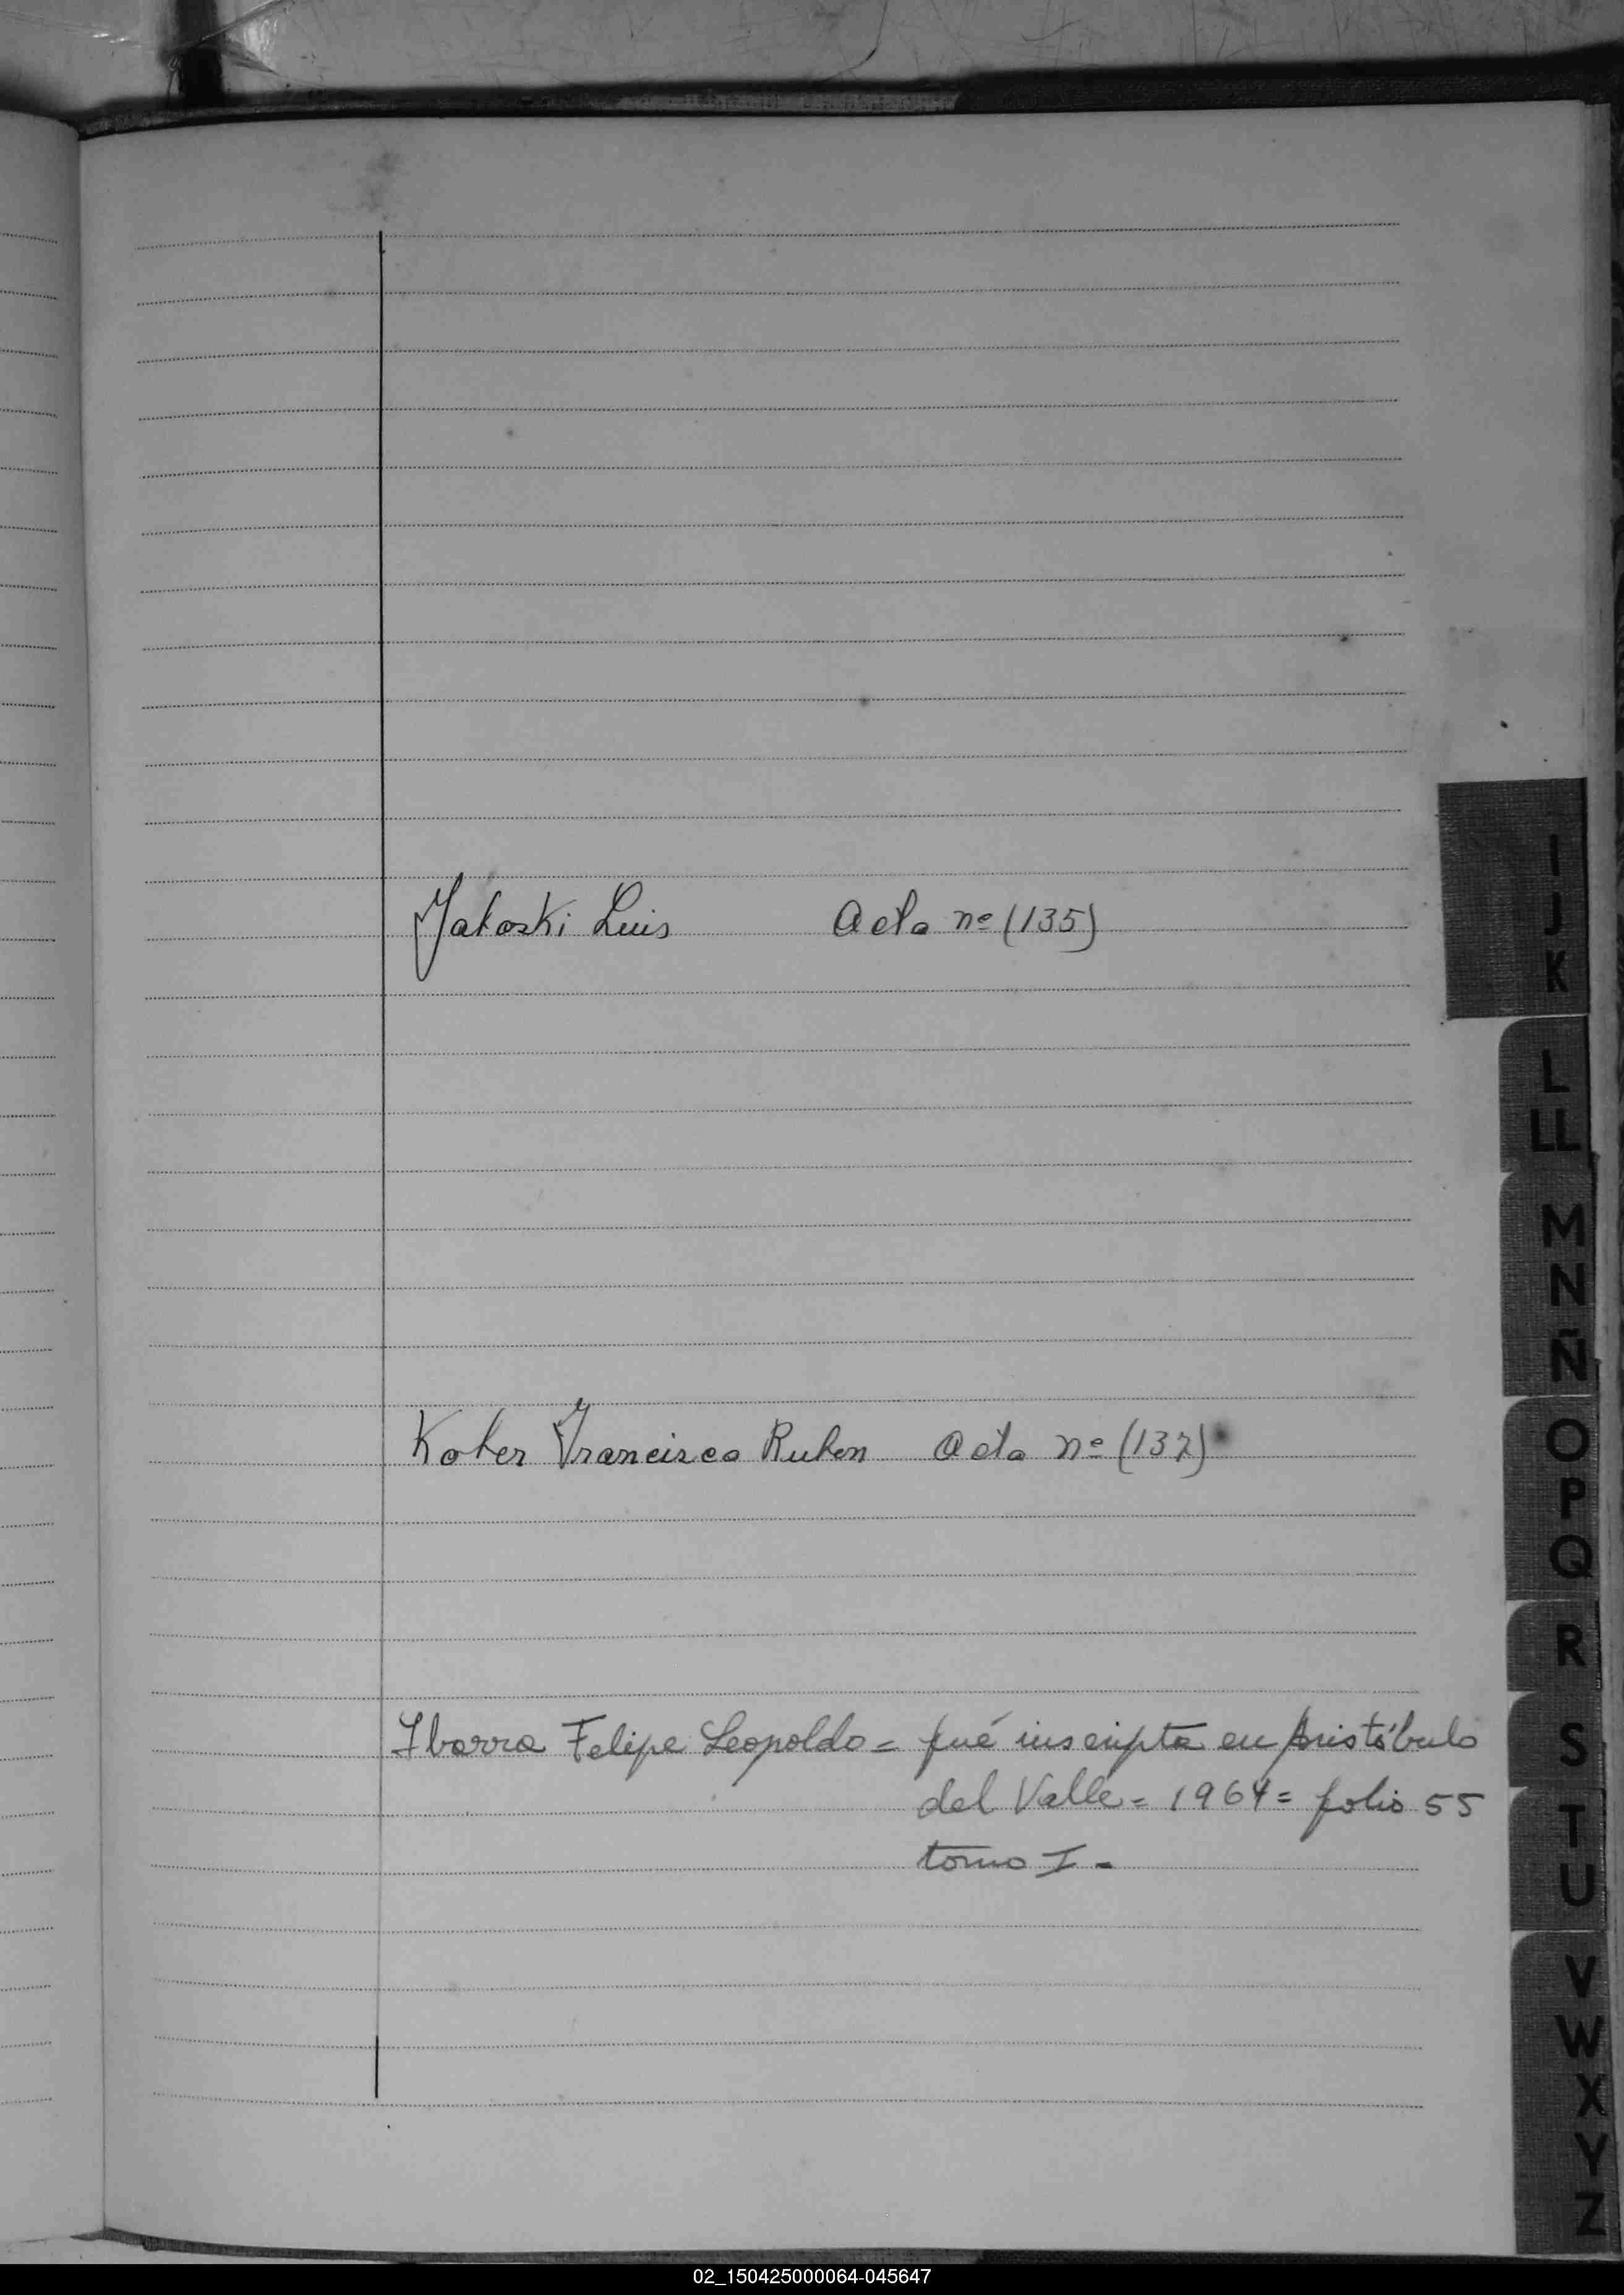 Jakoski Luis Acta nº (135)
Kober Francisco Ruben Acta nº (137)
Ibarra Felipe Leopoldo = fué inscripta en Aristóbulo
del Valle = 1964 = folio 55
tomo I -
I
J
K
L
LL
M
N
Ñ
O
P
Q
R
S
T
U
V
W
X
Y
Z
02_150425000064-045647